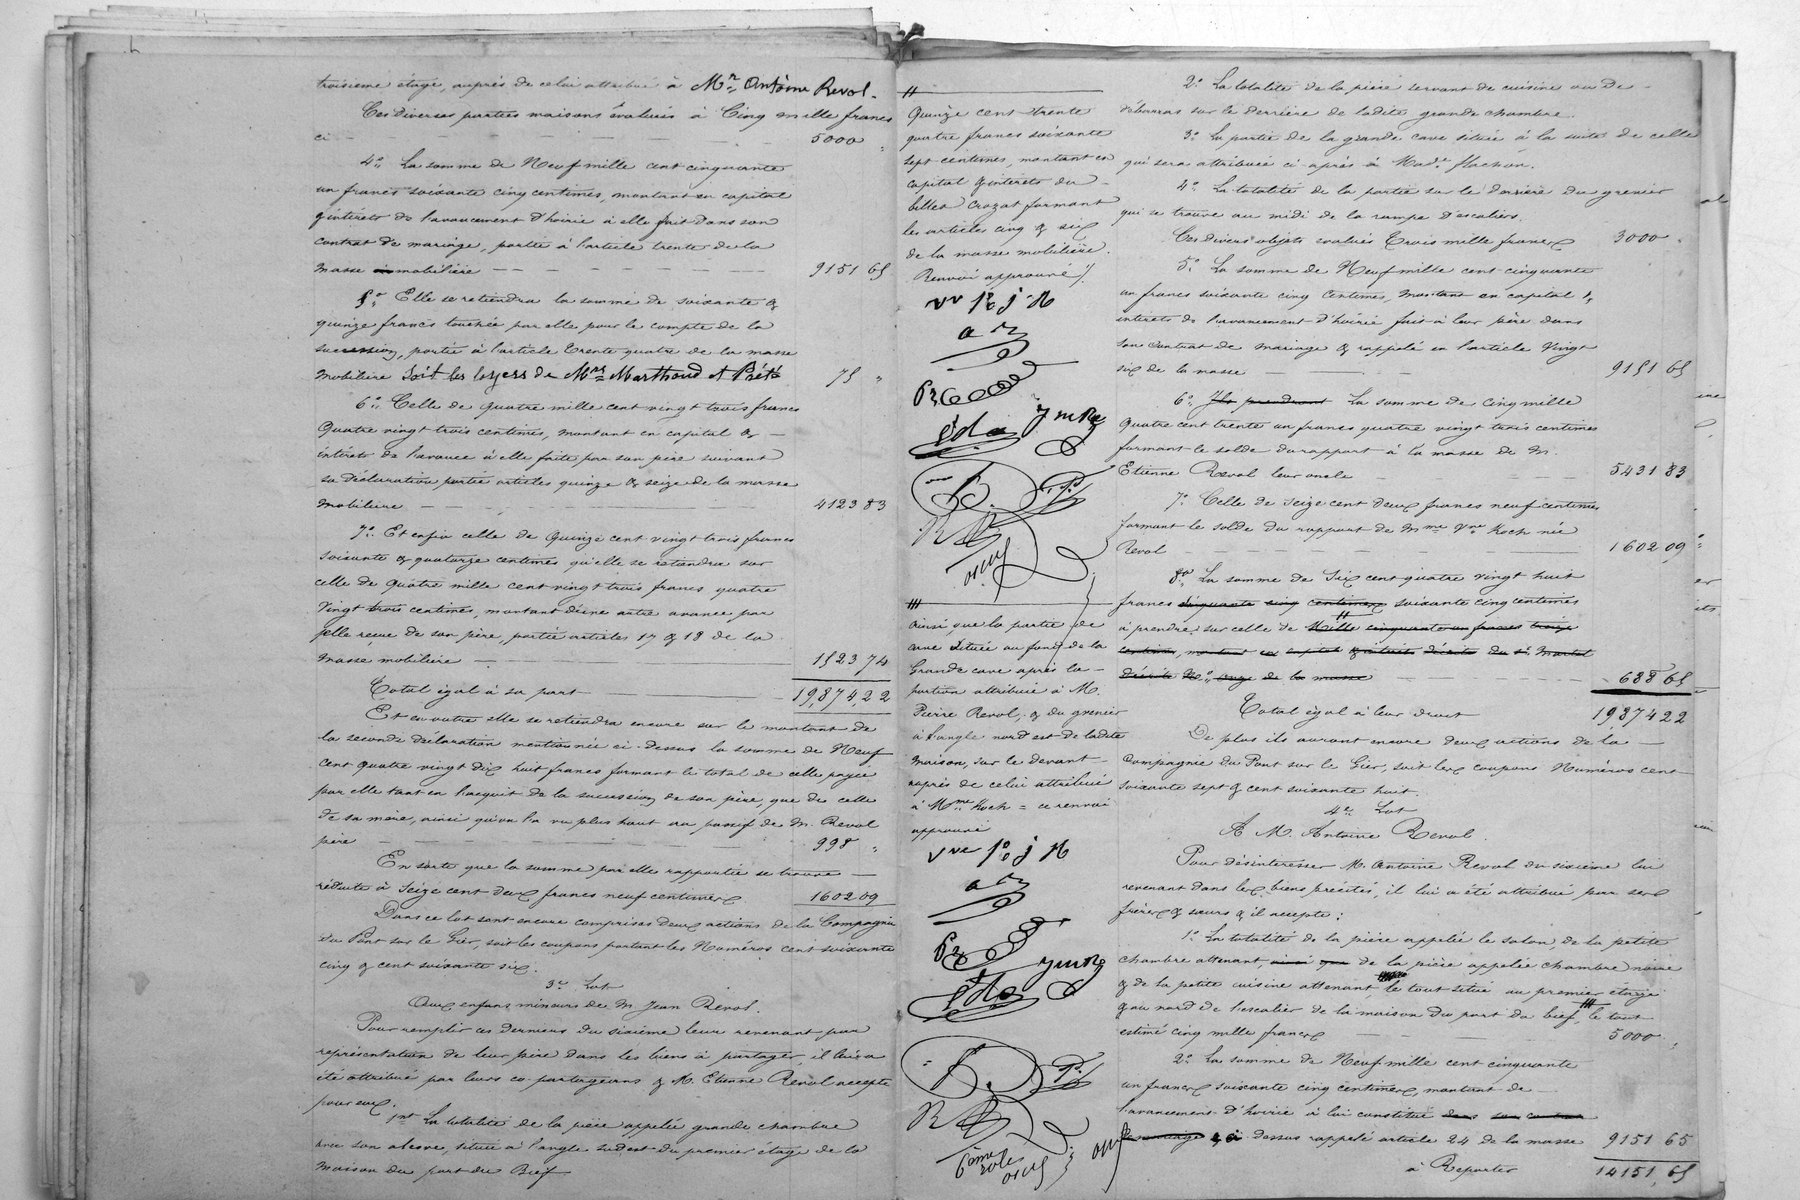 troisième étage, auprès de celui attribué à Mr. Antoine Revol.
Ces diverses parties maisons évalués à Cinq mille francs
ci 5000 "
4o. La somme de Neuf mille cent cinquante
un francs soixante cinq centimes, montant en capital
& intérêts de l'avancement d'hoirie à elle fait dans son
contrat de mariage, portée à l'article trente de la
masse mobilière 9151 65
5o. Elle se retiendra la somme de soixante &
quinze francs touchée par elle pour le compte de la
succession, portée à l'article trente quatre de la masse
mobilière soit les loyers de Mrs Marthoud et Prét 75 "
6o. Celle de quatre mille cent vingt trois francs
quatre vingt trois centimes, montant en capital &
intérêts de l'avance à elle faite par son père suivant
sa déclaration portée articles quinze & seize de la masse
mobilière 4123 83
7o. Et enfin celle de Quinze cent vingt trois francs
soixante & quatorze centimes qu'elle se retiendra sur
celle de quatre mille cent vingt trois francs quatre
vingt trois centimes, montant d'une autre avance par
elle reçue de son père, portée articles 17 & 18 de la
masse mobilière 1523 74
Total égal à sa part 19,874,22
Et en outre elle se retiendra encore sur le montant de
la seconde déclaration mentionnée ci-dessus la somme de Neuf
cent quatre vingt dix huit francs formant le total de celle payée
par elle tant en l'acquit de la succession de son père, que de celle
de sa mère, ainsi qu'on l'a vu plus haut au passif de M. Revol
père 998 "
En sorte que la somme par elle rapportée se trouve
réduite à seize cent deux francs neuf centimes. 1602 09
Dans ce lot sont encore comprises deux actions de la Compagnie
du Pont sur le Gier, soit les coupons portant les Numéros cent soixante
cinq & cent soixante six.
3e. Lot
Aux enfans mineurs de M. Jean Revol.
Pour remplir ces derniers du sixième leur revenant par
représentation de leur père dans les biens à partager, il leur a
été attribué par leurs co-partageans & M. Etienne Revol accepte
pour eux,
1ent La totalité de la pièce appelée grande chambre
avec son alcove, située à l'angle sud-est du premier étage de la
maison du port du Bief
Quinze cent trente
quatre francs soixante
sept centimes, montant en
capital & intérêts du
billet Crozat formant
les articles cinq & six
de la masse mobilière.
Renvoi approuvé
vve R j R
ymRe
ainsi que la partie de
cave située au fond de la
Grande cave après la
portion attribuée à M.
Pierre Revol, & du grenier
à l'angle nord est de ladite
maison, sur le devant
auprès de celui attribué
à Mme. Koch = ce renvoi
approuvé
ymRe
6ème rôle
2o. La totalité de la pièce servant de cuisine ou de
débarras sur le derrière de ladite grande chambre.
3o. La partie de la grande cave située à la suite de celle
qui sera attribuée ci-après à Made. Flachon.
4o. La totalité de la partie sur le derrière du grenier
qui se trouve au midi de la rampe d'escaliers.
Ces divers objets évalués Trois mille francs 3000 "
5o. La somme de Neuf mille cent cinquante
un francs soixante cinq centimes, montant en capital &
intérêts de l'avancement d'hoirie fait à leur père dans
son contrat de mariage & rappelé en l'article vingt
six de la masse 9151 65
6o. Ils prendront La somme de cinq mille
quatre cent trente un francs quatre vingt trois centimes
formant le solde du rapport à la masse de M.
Etienne Revol leur oncle 5431 83
7o. Celle de seize cent deux francs neuf centimes
formant le solde du rapport de Mme Vve. Koch née
Revol 1602 09
8o La somme de Six cent quatre vingt huit
francs cinquante cinq centimes soixante cinq centimes
à prendre sur celle de Mille cinquante un francs treize
688 65
Total égal à leur droit 19874 22
De plus ils auront encore deux actions de la
Compagnie du Pont sur le Gier, soit les coupons Numéros cent
soixante sept & cent soixante huit.
4e. Lot
A M. Antoine Revol.
Pour désintéresser M. Antoine Revol du sixième lui
revenant dans les biens précités, il lui a été attribué par ses
frères & sœurs & il accepte:
1o. La totalité de la pièce appelée le salon, de la petite
chambre attenant, ainsi que de la pièce appelée chambre noire
& de la petite cuisine attenant, le tout situé au premier étage
& au nord de l'escalier de la maison du port du bief, le tout
estimé cinq mille francs 5000 "
2o. La somme de Neuf mille cent cinquante
un francs soixante cinq centimes, montant de
l'avancement d'hoirie à lui constitué dans son contrat
de mariage & ci-dessus rappelé article 24 de la masse 9151 65
à Reporter 14151,65